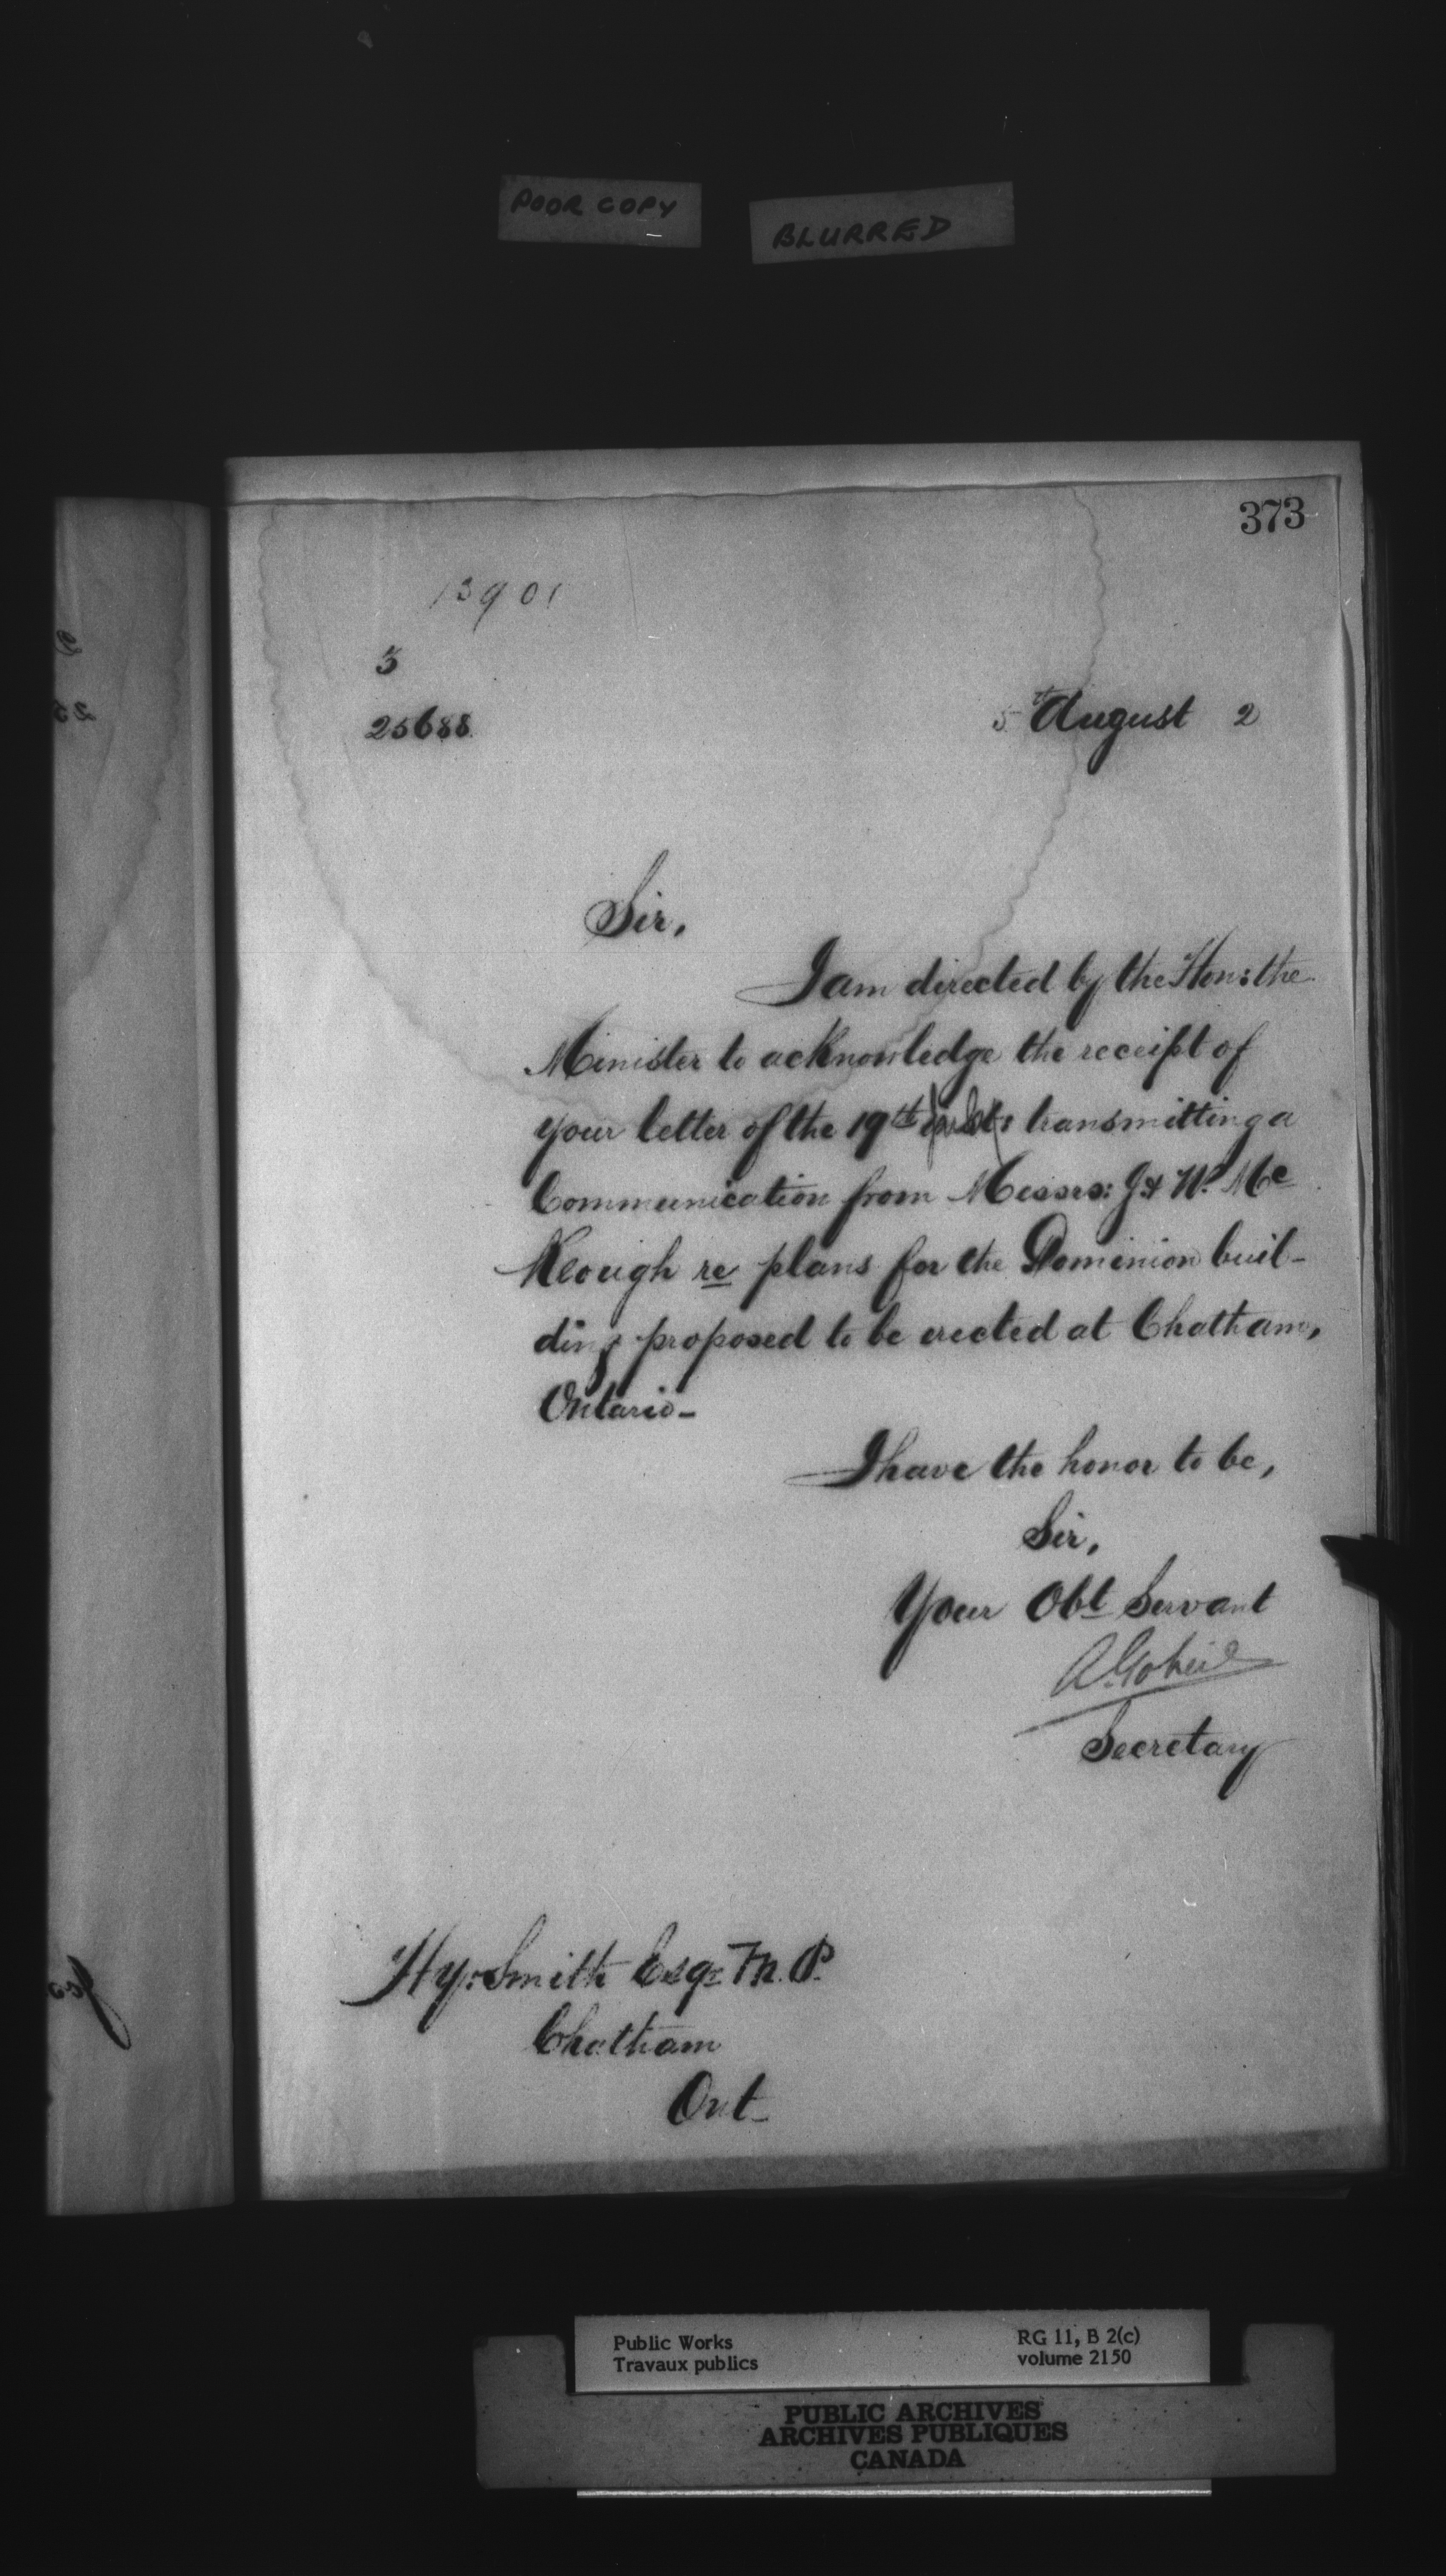 POOR COPY
BLURRED
373
13901
3
25688
5th August 2
Sir,
I am directed by the Hon: the
Minister to acknowledge the receipt of
your letter of the 19th transmitting a
Communication from Messrs: J & W. Mc
Keough re plans for the Dominion buil-
ding proposed to be erected at Chatham,
Ontario-
I have the honor to be,
Sir,
Your Obt Servant
A. Gobeil
Secretary
Hy: Smith Esqr M.P.
Chatham
Ont-
Public Works
Travaux publics
RG 11, B 2(c)
volume 2150
PUBLIC ARCHIVES
ARCHIVES PUBLIQUES
CANADA